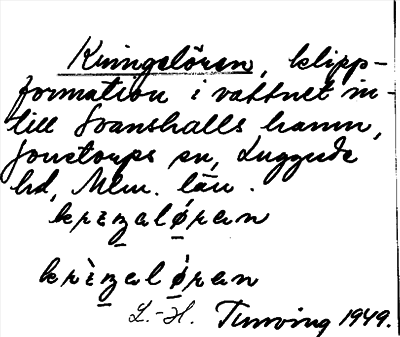 Kringelören, klipp-
formation i vattnet in-
till Svanshalls hamn,
Jonstorps sn, Luggude
hd, Mlm. län.
krɪŋalǿran
krɪ̀ŋalǿran
L.-H. Turving 1949.